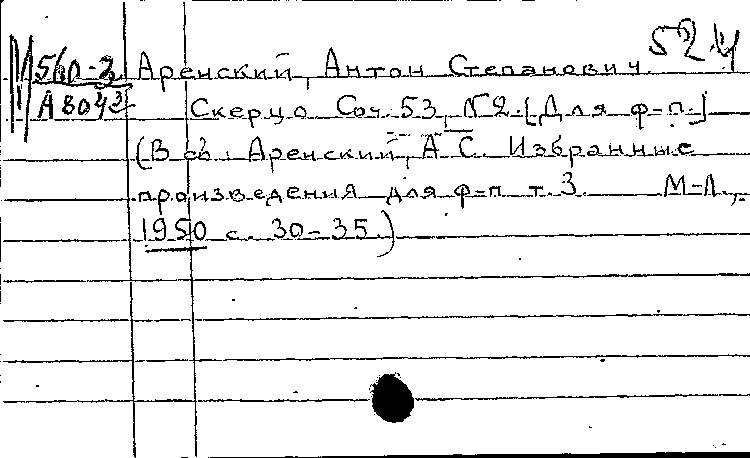 52 4
М 560-3 Аренский, Антон Степанович.
А 8042 Скерцо Соч. 53, №2. [Для ф-п.]
(В сб.: Аренский, А С. Избранные
произведения для ф-п т. 3. М-Л.,
1950 с. 30-35.)